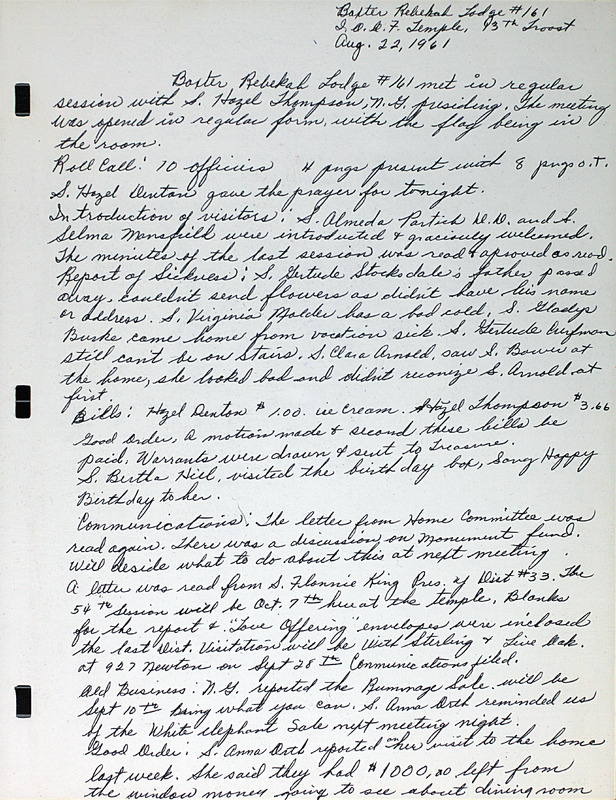 Baxter Rebekah Lodge #161
I.O.O.F. Temple, 43th Troost
Aug. 22, 1961
Baxter Rebekah Lodge #161 met in regular
session with S. Hazel Thompson, N.G. presiding. The meeting
was opened in regular form, with the flag being in
the room.
Roll Call: 10 officers 4 pngs present with 8 pngs o.T.
S. Hazel Denton gave the prayer for tonight.
Introduction of visitors: S. Almeda Partich D.D. and S.
Selma Mansfield were introduced & graciously welcomed.
The minutes of the last session was read & aproved as read.
Report of Sickness: S. Gertude Stocksdale's father passed
away. couldn't send flowers as didn't have his name
or address. S. Virginia Molder has a bad cold, S. Gladys
Burke came home from vacation sick. S. Gertude Curfman
still can't be on stairs. S. Clara Arnold, saw S. Bower at
the home, she looked bad and didn't reconize S. Arnold at
first.
Bills: Hazel Denton $1.00. ice cream. Hazel Thompson $3.66
Good Order, a motion made & second these bills be
paid. Warrants were drawn & sent to Treasure.
S. Bertha Hill, visited the birthday box, Sang Happy
Birthday to her.
Communications: The letter from Home Committee was
read again. There was a discussion on Monument fund.
Will deside what to do about this at next meeting.
A letter was read from S. Flonnie King Pres. of Dist #33. The
54th Session will be Oct. 7th here at the temple. Blanks
for the report & "Love Offering" envelopes were inclosed
the last Dist. Visitation will be With Sterling & Live Oak.
at 927 Newton on Sept 28th Communications filed.
Old Business: N.G. reported the Rummage Sale. will be
Sept 10th Bring what you can. S. Anna Orth reminded us
of the White elephant Sale next meeting night.
Good Order: S. Anna Orth reported on her visit to the home
last week. She said they had $1000,00 left from
the window money going to see about dining room